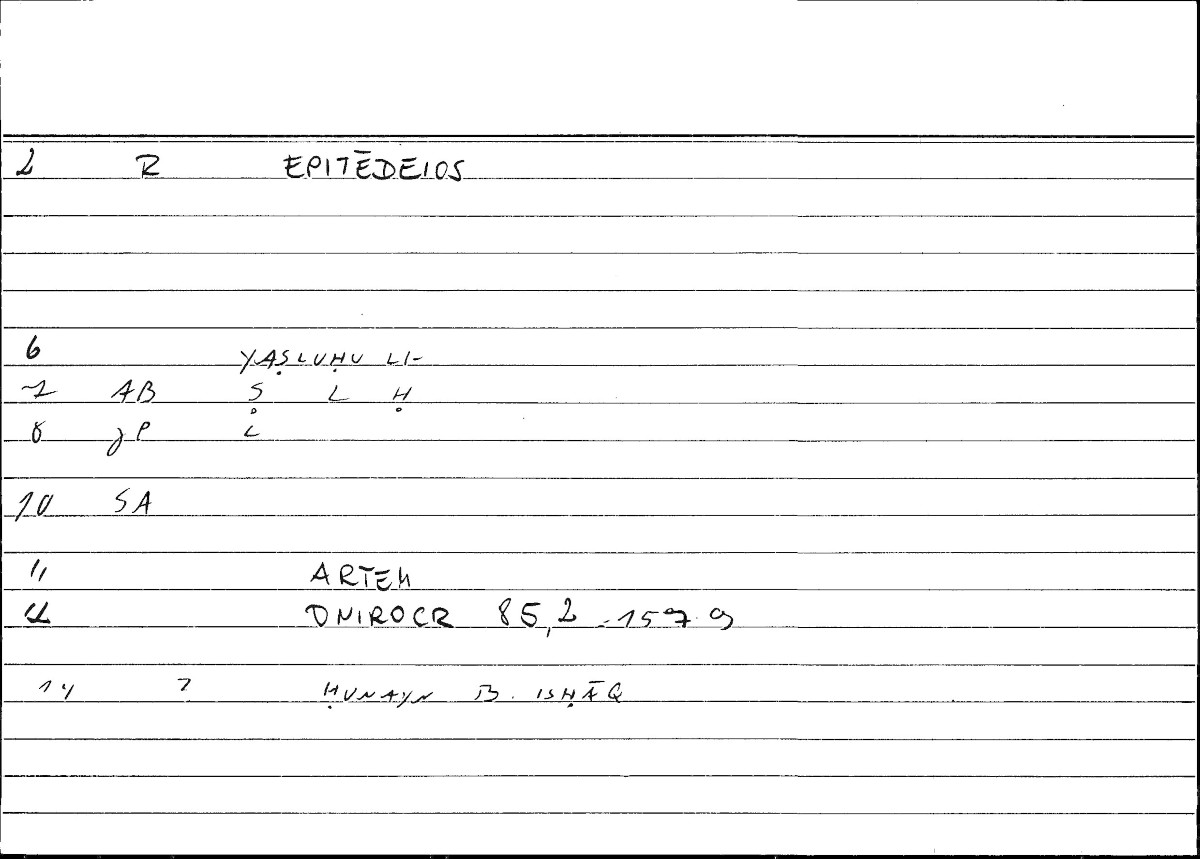 2 R EPITĒDEIOS
6 YAṢLUḤU LI-
7 AB Ṣ L Ḥ
8 JP L
10 SA
11 ARTEM
12 ONIROCR 85,2 - 157.9
14 ? ḤUNAYN B. ISḤĀQ